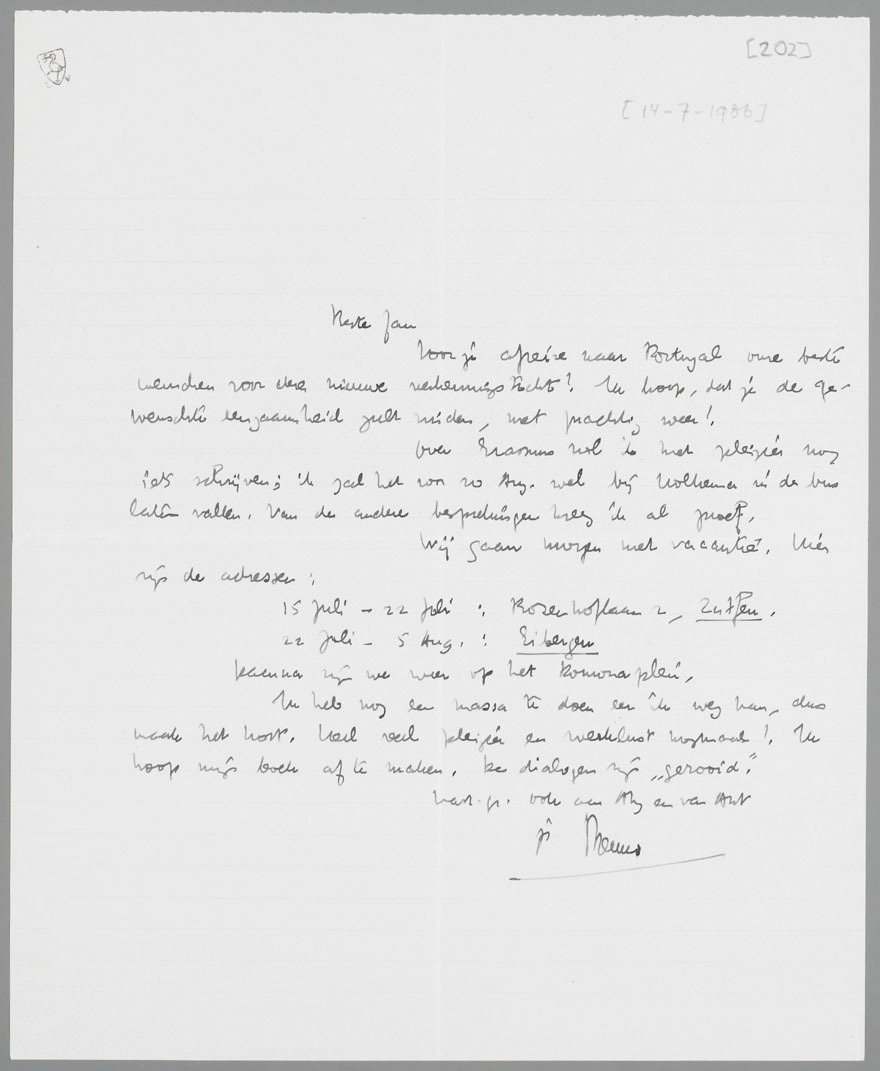 [202]
[14-7-1933]
Beste Jan
Voor je afreize naar Portugal onze beste
wenschen voor deze nieuwe verkenningstocht! Ik hoop, dat je de ge-
wenschte eenzaamheid zult vinden, met prachtig weer!
Over Erasmus wil ik met pleizier nog
iets schrijven; ik zal het voor 20 Aug. wel bij in de bus
laten vallen. Van de andere besprekingen kreeg ik al proef.
Wij gaan morgen met vacantie. Hier
zijn de adressen:
15 Juli – 22 Juli : Rozenhoflaan 2, Zutfen.
22 Juli – 5 Aug. : Eibergen
Daarna zijn we weer op het Pomonaplein.
Ik heb nog een massa te doen eer ik weg kan, dus
maak het kort. Veel pleizier en werklust nogmaals! Ik
hoop mijn boek af te maken. De dialogen zijn „gerooid".
hart. gr. ook aan Aty en van Ant
je Menno